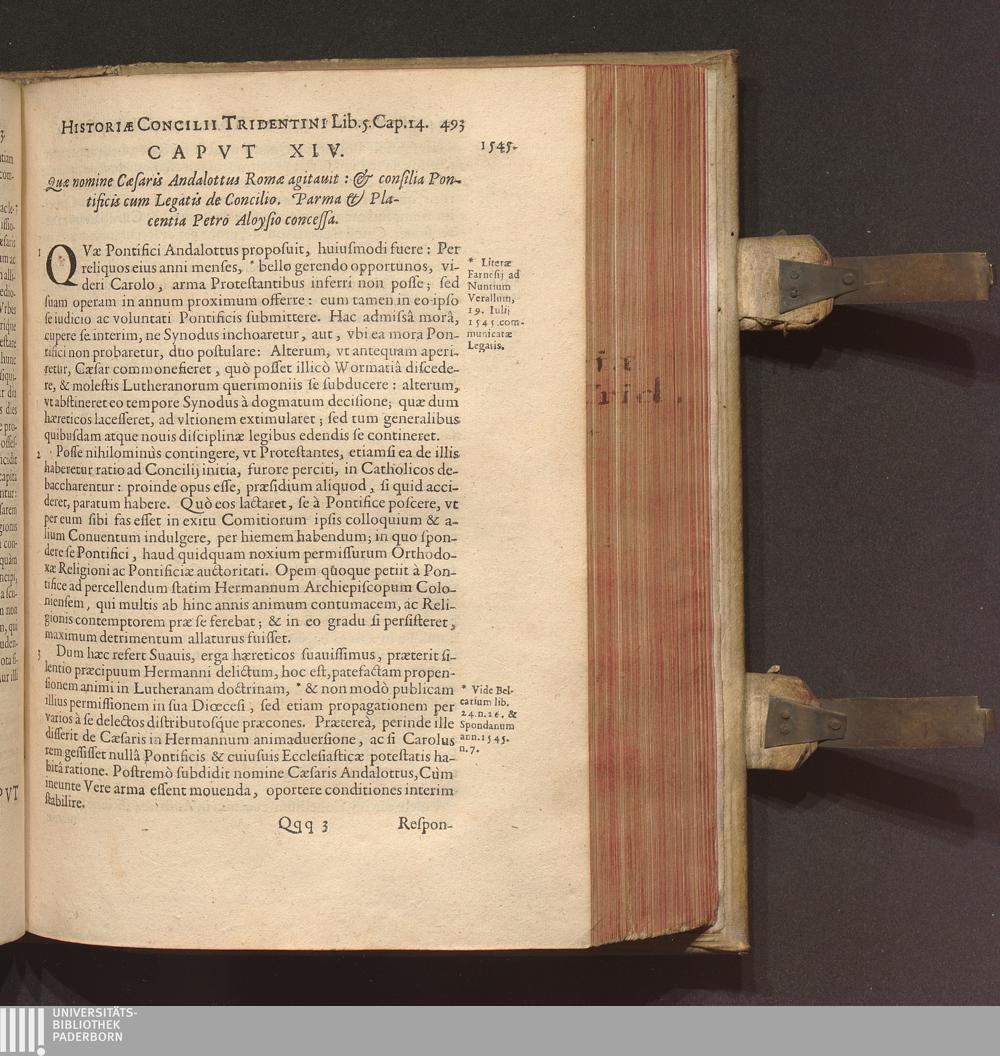 HISTORIÆ CONCILII TRIDENTINI Lib.5.Cap.14. 493
CAPVT XIV.
1545.
Quæ nomine Cæſaris Andalottus Romæ agitauit : & conſilia Pon-
tificis cum Legatis de Concilio. Parma & Pla-
centia Petro Aloyſio conceſſa.
1 QVæ Pontifici Andalottus propoſuit, huiuſmodi fuere : Per
reliquos eius anni menſes, * bello gerendo opportunos, vi-
deri Carolo, arma Proteſtantibus inferri non poſſe; ſed
ſuam operam in annum proximum offerre : eum tamen in eo ipſo
ſe iudicio ac voluntati Pontificis ſubmittere. Hac admiſſâ morâ,
cupere ſe interim, ne Synodus inchoaretur, aut, vbi ea mora Pon-
tifici non probaretur, duo poſtulare: Alterum, vt antequam aperi-
retur, Cæſar commonefieret, quò poſſet illicò Wormatiâ diſcede-
re, & moleſtis Lutheranorum querimoniis ſe ſubducere : alterum,
vt abſtineret eo tempore Synodus à dogmatum deciſione; quæ dum
hæreticos laceſſeret, ad vltionem extimularet; ſed tum generalibus
quibuſdam atque nouis diſciplinæ legibus edendis ſe contineret.
* Literæ
Farneſij ad
Nuntium
Verallum,
19. Iulij
1545.com-
municatæ
Legatis.
2 Poſſe nihilominùs contingere, vt Proteſtantes, etiamſi ea de illis
haberetur ratio ad Concilij initia, furore perciti, in Catholicos de-
baccharentur : proinde opus eſſe, præſidium aliquod, ſi quid acci-
deret, paratum habere. Quò eos lactaret, ſe à Pontifice poſcere, vt
per eum ſibi fas eſſet in exitu Comitiorum ipſis colloquium & a-
lium Conuentum indulgere, per hiemem habendum; in quo ſpon-
dere ſe Pontifici, haud quidquam noxium permiſſurum Orthodo-
xæ Religioni ac Pontificiæ auctoritati. Opem quoque petiit à Pon-
tifice ad percellendum ſtatim Hermannum Archiepiſcopum Colo-
nienſem, qui multis ab hinc annis animum contumacem, ac Reli-
gionis contemptorem præ ſe ferebat; & in eo gradu ſi perſiſteret,
maximum detrimentum allaturus fuiſſet.
3 Dum hæc refert Suauis, erga hæreticos ſuauiſſimus, præterit ſi-
lentio præcipuum Hermanni delictum, hoc eſt, patefactam propen-
ſionem animi in Lutheranam doctrinam, * & non modò publicam
illius permiſſionem in ſua Diœceſi, ſed etiam propagationem per
varios à ſe delectos diſtributoſq́ue præcones. Prætereà, perinde ille
diſſerit de Cæſaris in Hermannum animaduerſione, ac ſi Carolus
rem geſſiſſet nullâ Pontificis & cuiuſuis Eccleſiaſticæ poteſtatis ha-
bitâ ratione. Poſtremò ſubdidit nomine Cæſaris Andalottus, Cùm
ineunte Vere arma eſſent mouenda, oportere conditiones interim
ſtabilire.
* Vide Bel-
carium lib.
24.n.26. &
Spondanum
ann.1545.
n.7.
Qqq 3 Reſpon-
UNIVERSITÄTS-
BIBLIOTHEK
PADERBORN